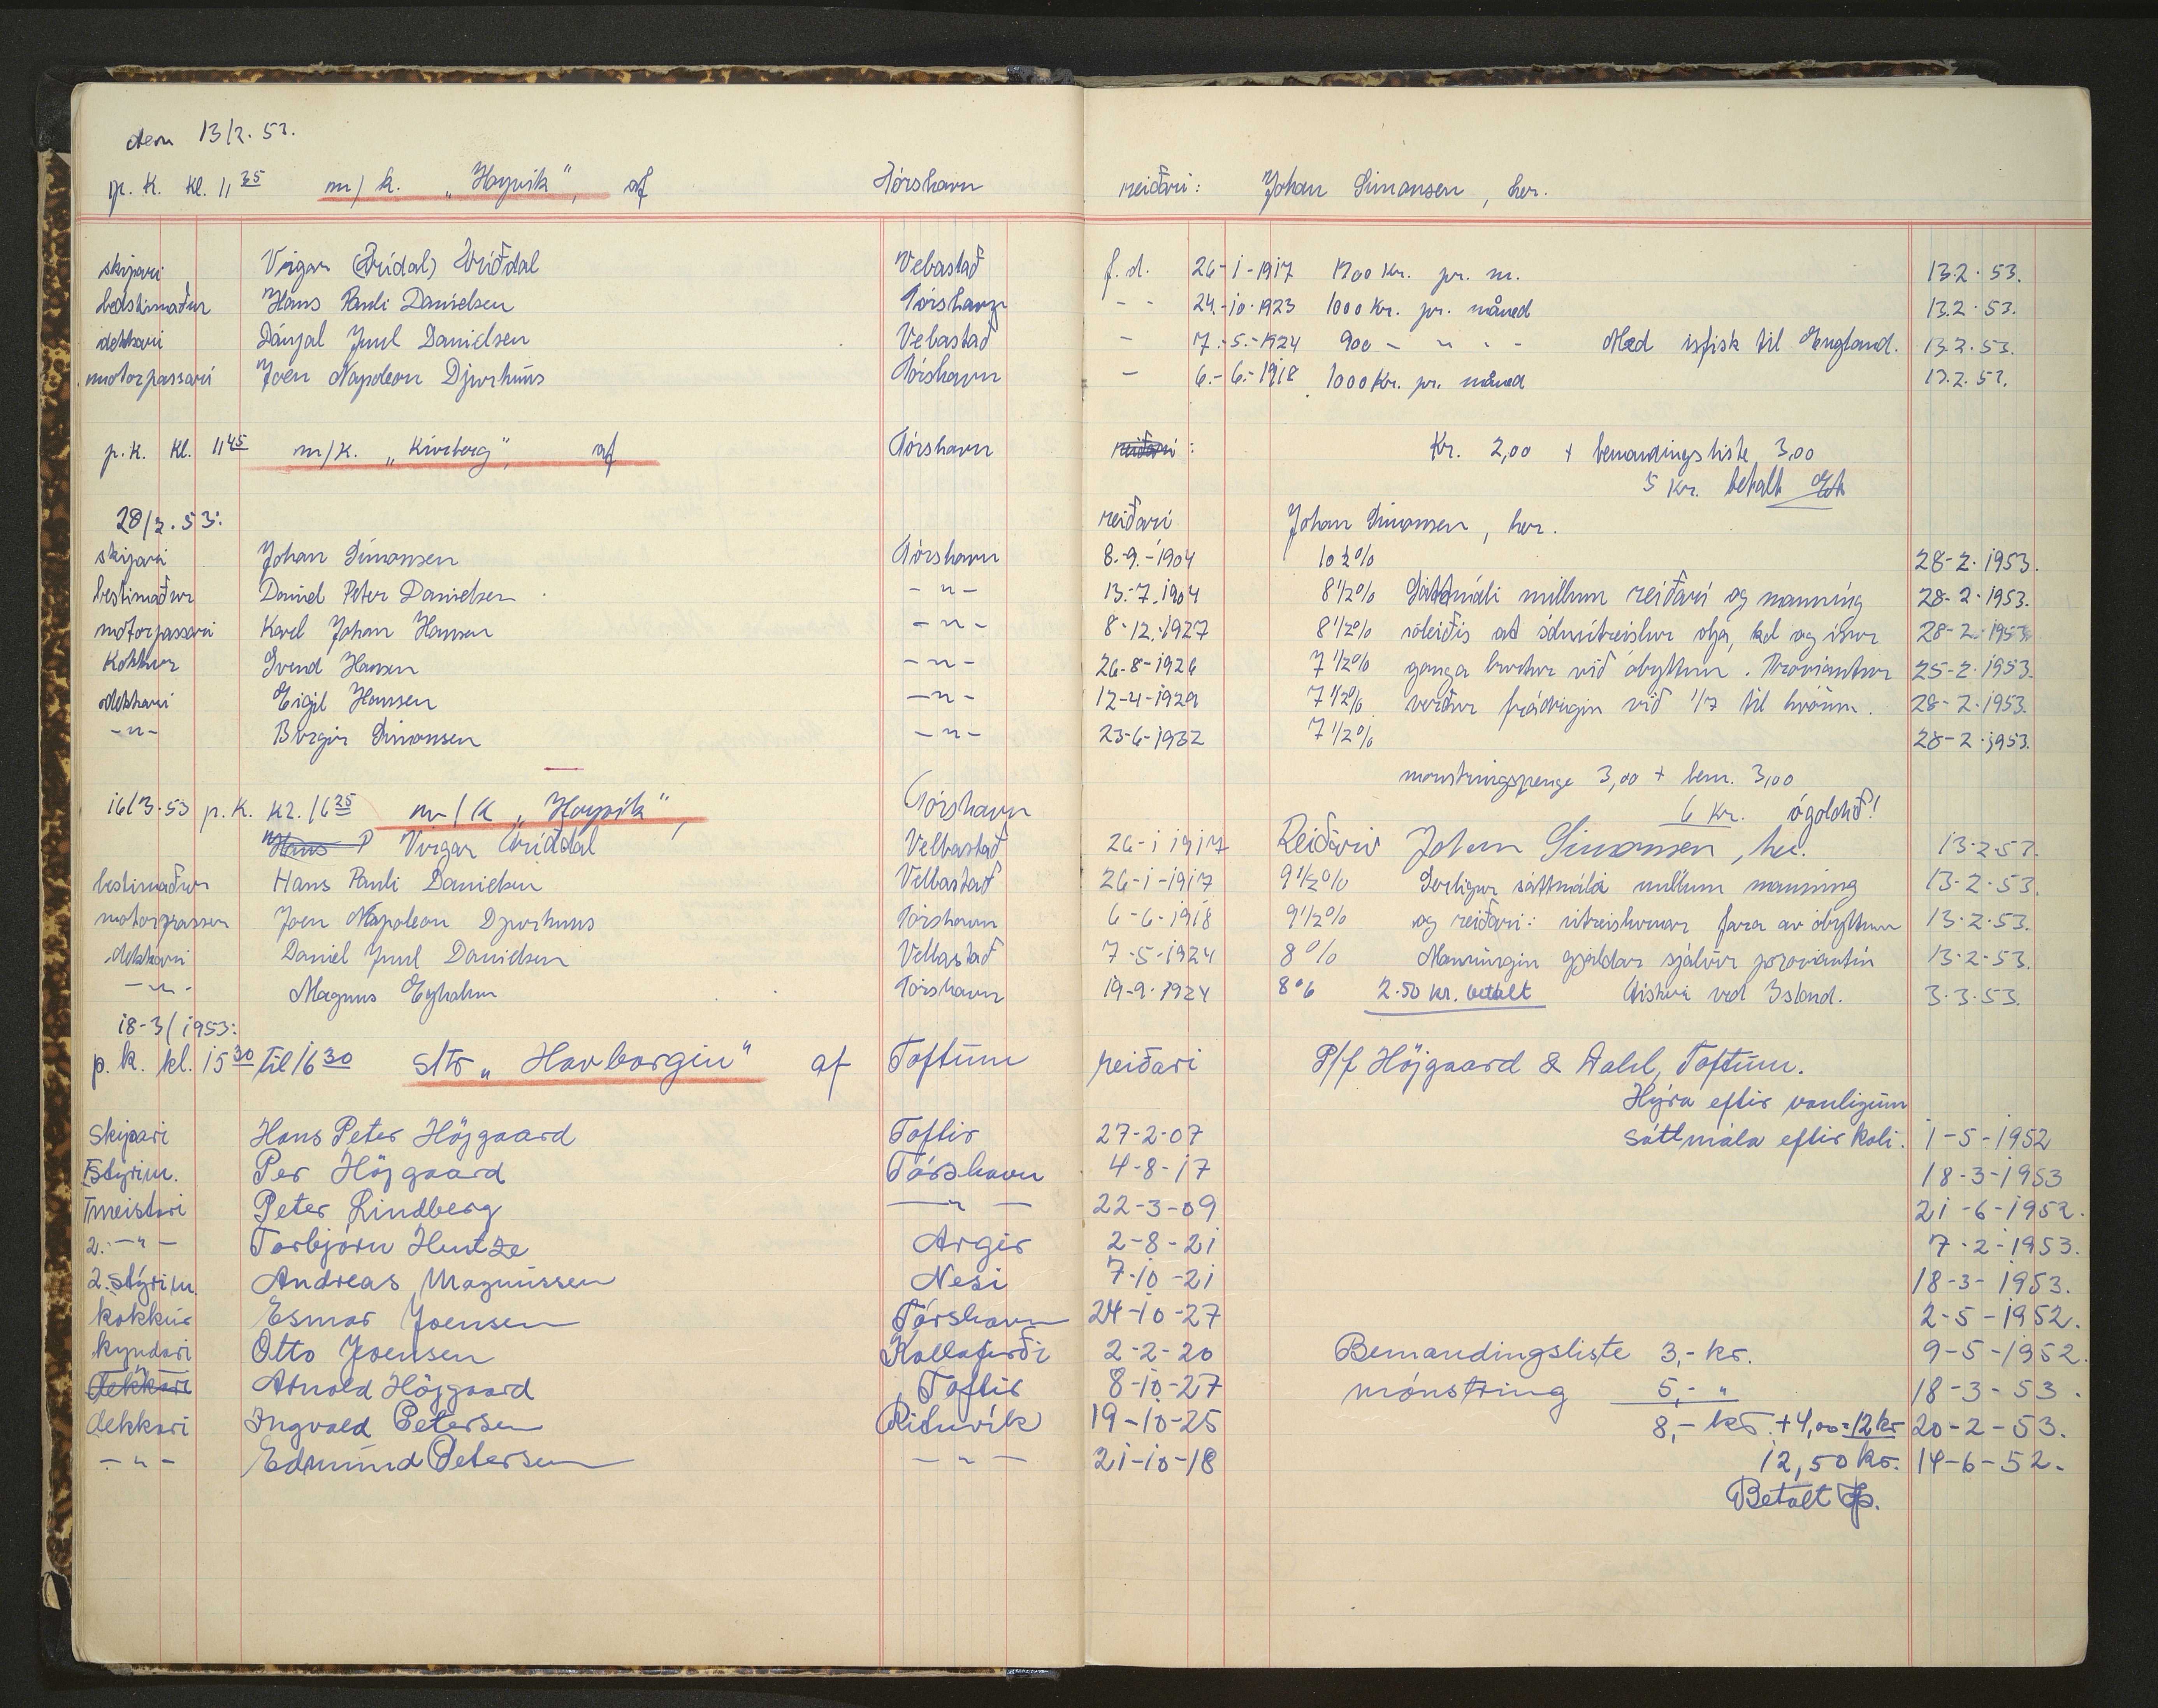 den 13/2. 53.
p. K. Kl. 11 35 m/k. „Hoyvík", af Tórshavn reiðari: Johan Simonsen, her.
skipari Virgar (Dridal) Driðdal Velbastað f.d. 26-1-1917 1700 Kr. pr. m. 13.2.53.
bestimaður Hans Pauli Danielsen Tórshavn - - 24.-10.1923 1000 Kr. pr. måned 13.2.53.
dekkari Dánjal Juul Danielsen Velbastað - 7.-5.-1924 900 - " - - Med isfisk til England. 13.2.53.
motorpassari Joen Napoleon Djurhuus Tórshavn - 6.-6.-1918 1000 Kr. pr. måned 13.2.53.
p.K. Kl. 11 45 m/K. „Kirvberg", af Tórshavn reiðari : Kr. 2,00 + bemandingsliste 3,00
5 Kr. betalt
28/2.53: reiðari Johan Simonsen, her.
skipari Johan Simonsen Tórshavn 8.-9.-1904 10½% 28-2-1953.
bestimaður Daniel Peter Danielsen - " - 13.-7.-1904 8 1/2% Sáttmáli millum reiðari og manning 28-2-1953.
motorpassari Karl Johan Hansen - " - 8-12.-1927 8 1/2% soleiðis at ísúnitreiskur olja, kol og ísur 28-2-1953.
Kokkur Svend Hansen - " - 26-8-1926 7 1/2% ganga burtur við óbýttum. Proviantur 25-2-1953.
dekkari Eigil Hansen - " - 12-4-1929 7 1/2% verður frádrigin við 1/7 til hvønn. 28-2-1953.
- " - Birgir Simonsen - " - 23-6-1932 7 1/2% 28-2-1953.
mønstringspenge 3,00 + bem. 3,00
6 kr. ógoldið!
16/3-53 p. K. Kl. 16 25 m/K „Hoyvík", Tórshavn
Hans P Virgar Driðdal Velbastað 26-1 1917 Reiðari Johan Simonsen, her. 13-2-53.
bestimaður Hans Pauli Danielsen Velbastað 26-1-1917 9 1/2% Serligur sáttmála millum manning 13-2-53.
motorpassari Joen Napoleon Djurhuus Tórshavn 6-6-1918 9 1/2% og reiðari: útreiðslurnar fara av óbýttum 13-2-53.
dekkari Daniel Juul Danielsen Velbastað 7-5-1924 8% Manningin gjaldar sjálvur proviantin 13-2-53.
- " - Magnus Eyholm Tórshavn 19-9-1924 8% 2.50 kr. betalt fiskeri ved Island. 3-3-53.
18-3/1953:
p.k. kl. 15 30 til 16 30 str „Havborgin" af Toftum reiðari P/f Höjgaard & Dahl, Toftum.
Hýra eftir vanligum
Skipari Hans Peter Höjgaard Toftir 27-2-07 sáttmála eftir koli. 1-5-1952
I Stýrim. Per Höjgaard Tórshavn 4-8-17 18-3-1953
I meistari Peter Lindberg - " - 22-3-09 21-6-1952.
2. - " - Torbjörn Hentze Argir 2-8-21 7-2-1953.
2. stýrim. Andreas Magnussen Nesi 7-10-21 18-3-1953.
kokkur Esmar Joensen Tórshavn 24-10-27 2-5-1952.
kyndari Otto Joensen Kollafirði 2-2-20 Bemandingsliste 3,- kr. 9-5-1952.
dekkari " Arnold Höjgaard Toftir 8-10-27 mónstring 5,- " 18-3-53.
dekkari Ingvald Petersen Rituvík 19-10-25 8,- kr. +4,00=12 kr 20-2-53.
- " - Edmund Petersen - " - 21-10-18 12,50 kr. 14-6-52.
Betalt